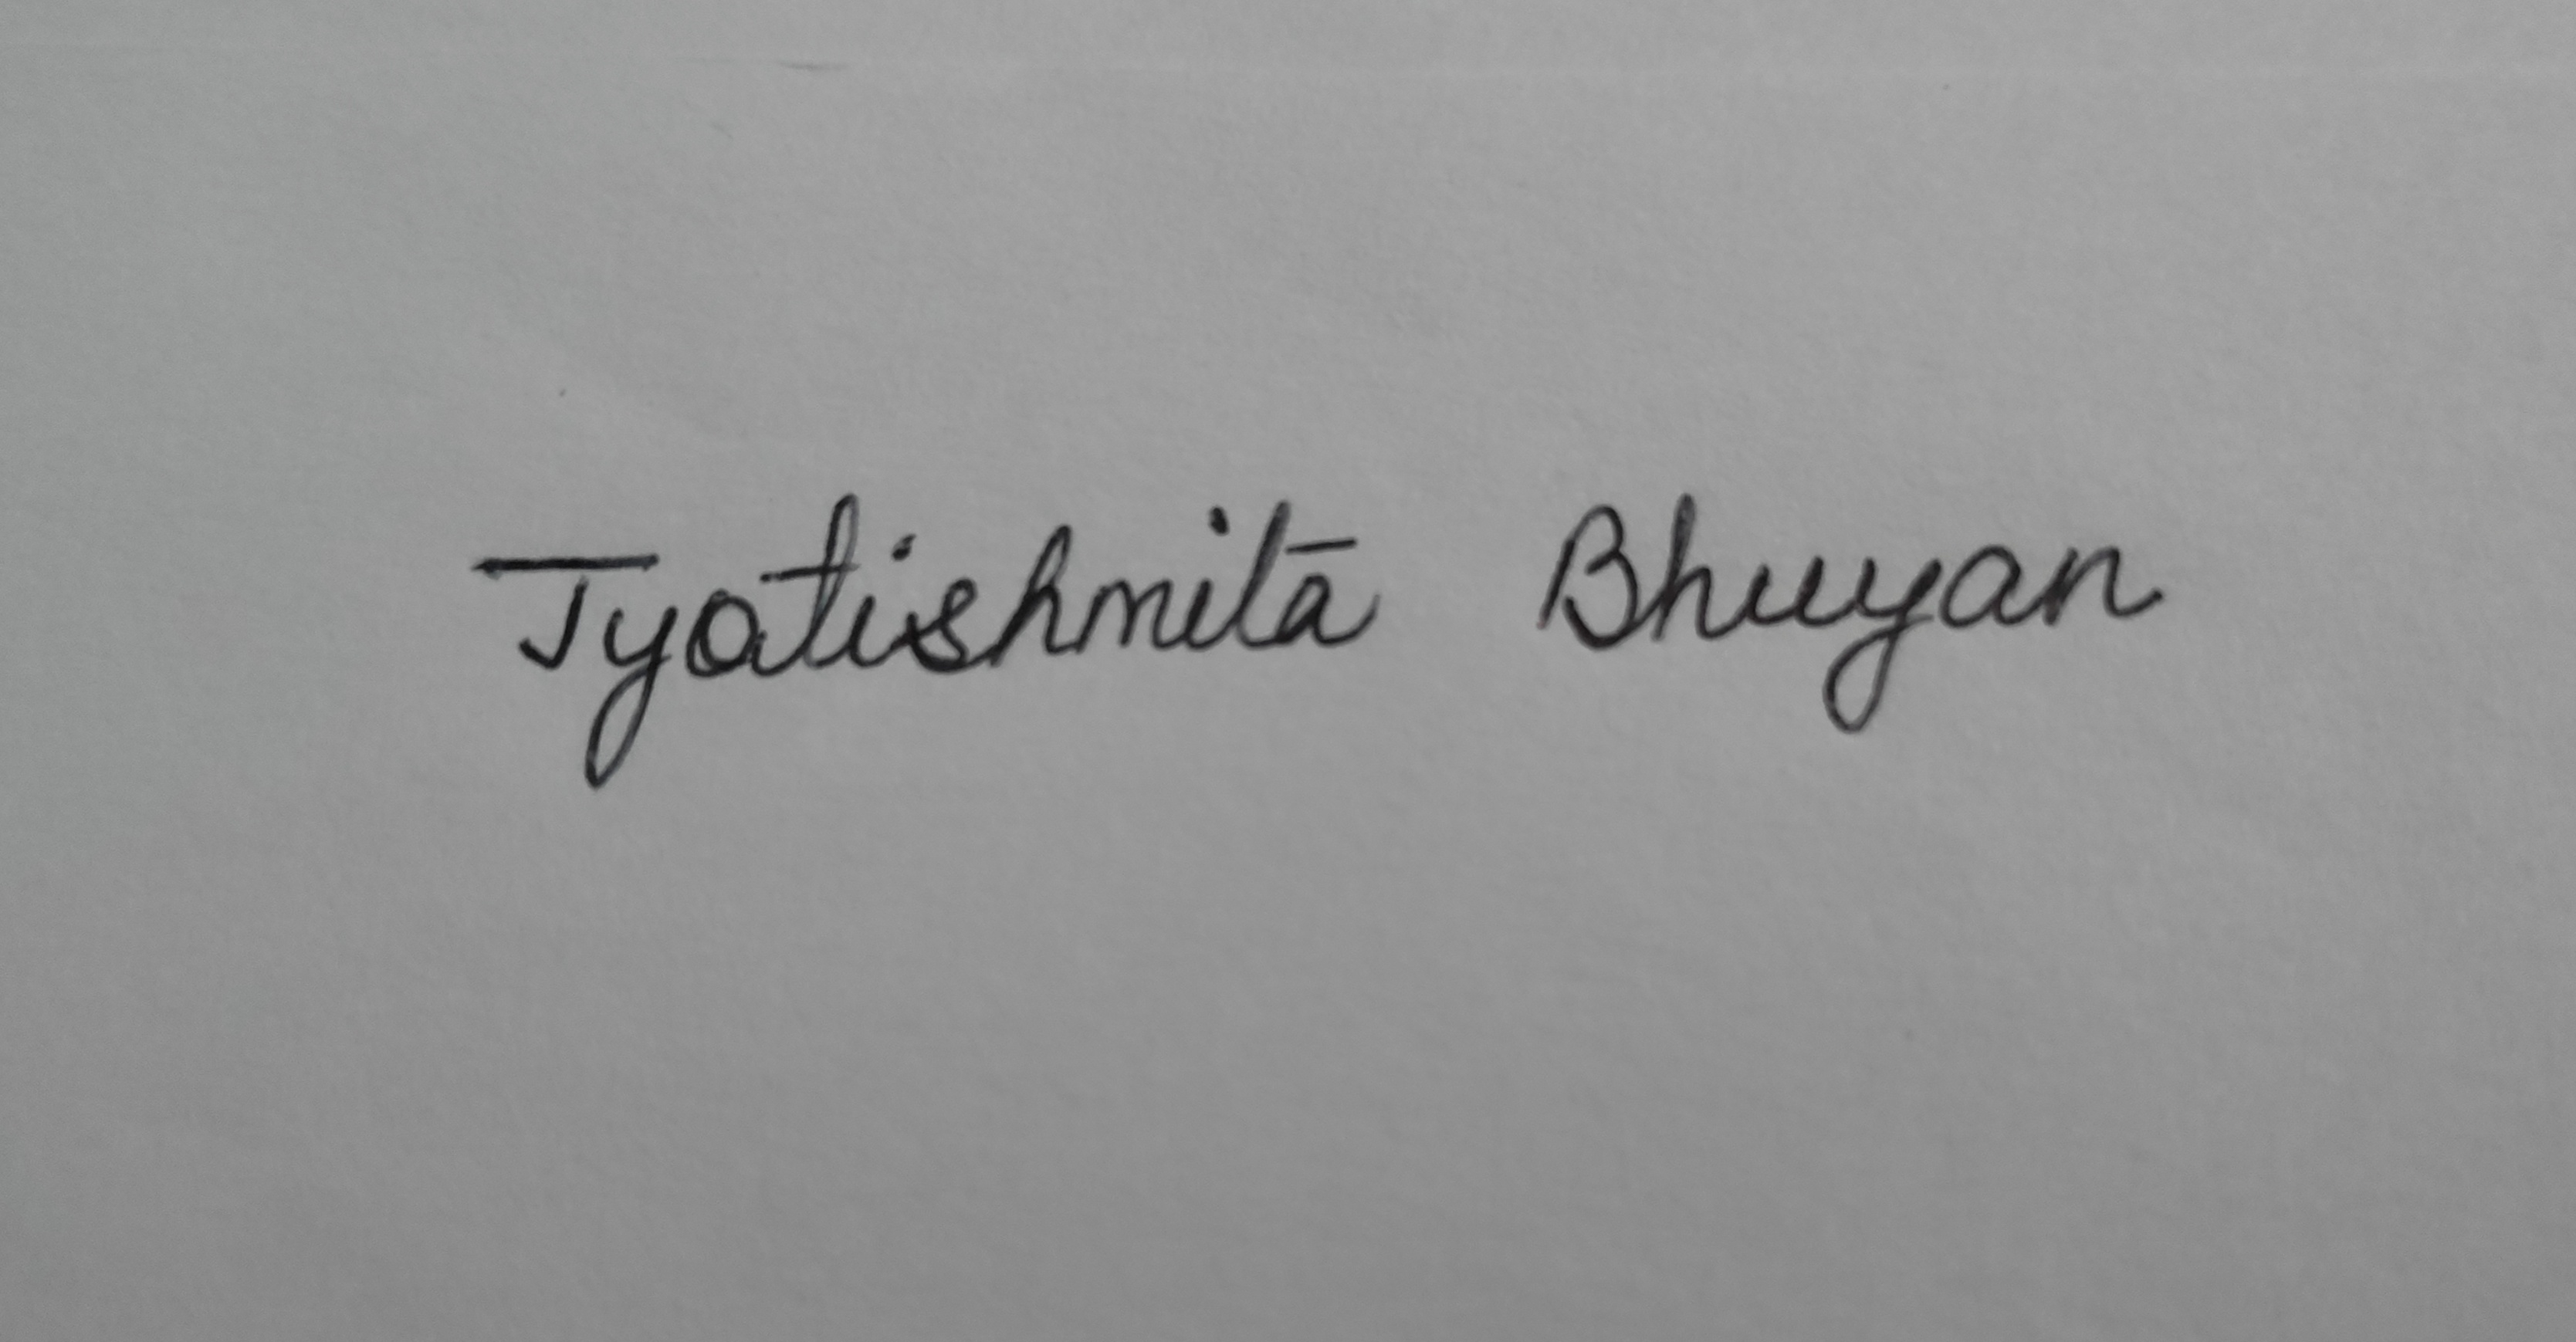 Jyotishmita Bhuyan